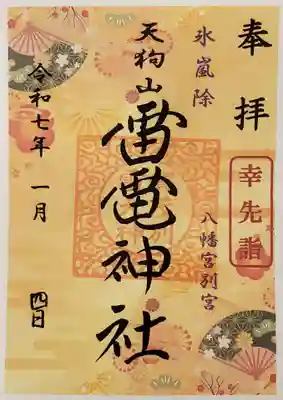 奉拝
幸先詣
氷嵐除
八幡宮別宮
天狗山
雷電神社
令和七年 一月 四日